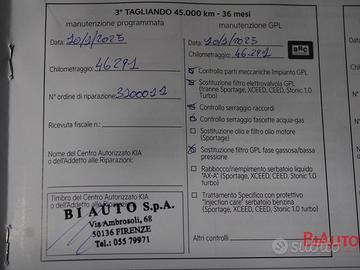 3° TAGLIANDO 45.000 km - 36 mesi
manutenzione programmata
manutenzione GPL
Data: 20/1/2025
Data: 20/1/2025
Chilometraggio: 46291
Chilometraggio: 46.291
BRC
N° ordine di riparazione: 3200011
Controllo parti meccaniche Impianto GPL
Sostituzione filtro elettrovalvola GPL
(tranne Sportage, XCEED, CEED, Stonic 1.0
Turbo)
Ricevuta fiscale n.:
Controllo serraggio raccordi
Controllo serraggio fascette acqua-gas
Sostituzione olio e filtro olio motore
(Sportage)
Nome del Centro Autorizzato KIA
o dell'Addetto alle Riparazioni:
Sostituzione filtro GPL fase gassosa/bassa
pressione
Rabbocco/riempimento serbatoio liquido
"AX-A" (Sportage, XCEED, CEED, Stonic 1.0
turbo)
Timbro del Centro Autorizzato KIA
o dell'Addetto alle Riparazioni:
BI AUTO S.p.A.
Via Ambrosoli, 68
50136 FIRENZE
Tel.: 055 79971
Trattamento Specifico con protettivo
"injection care" serbatoio benzina
(Sportage, XCEED, CEED, Stonic 1.0 Turbo)
Altri controlli
BiAuto
subito